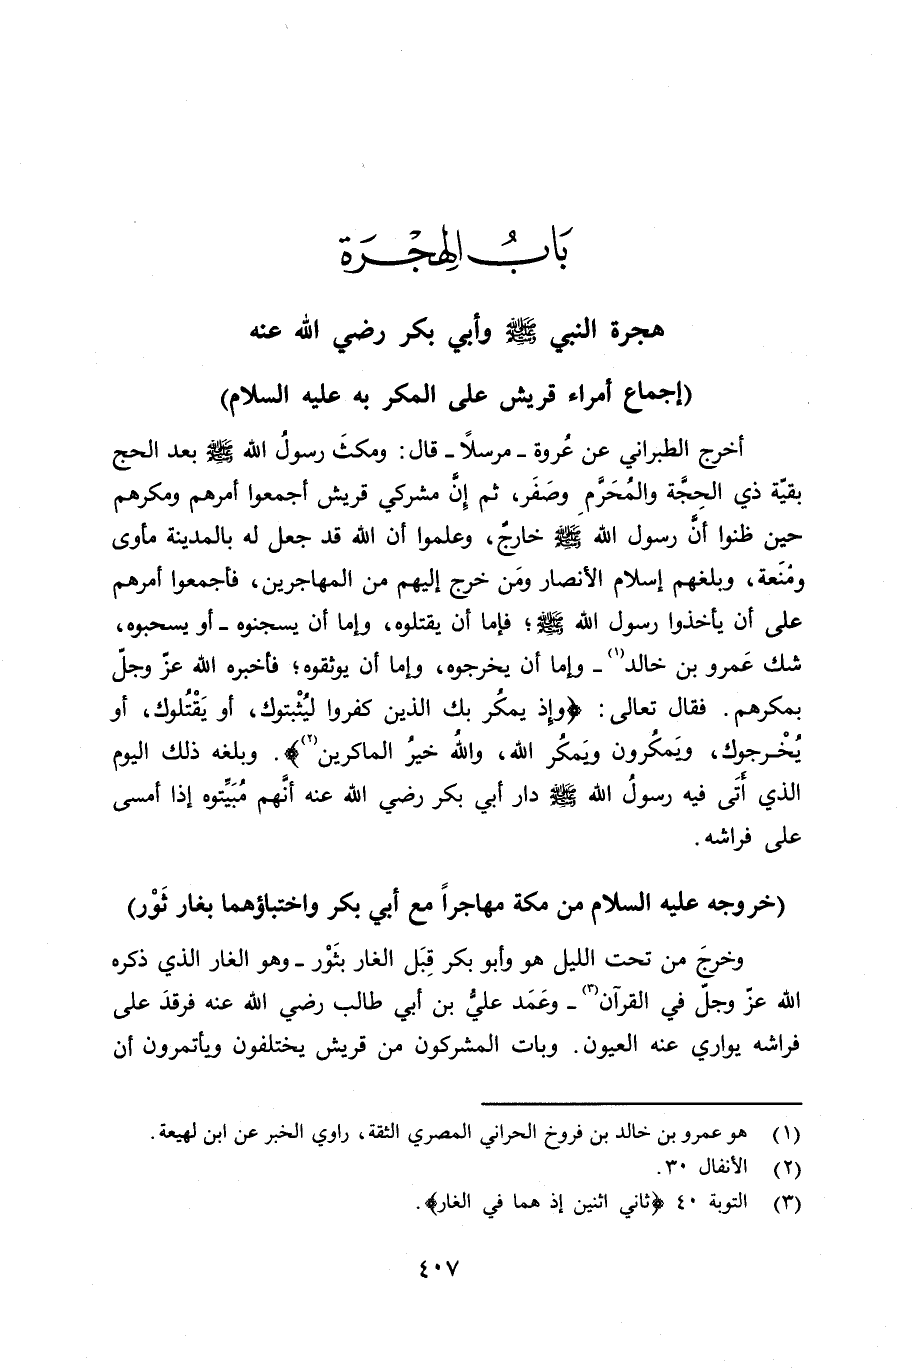 بَابُ الهِجْرَة
هجرة النبي ﷺ وأبي بكر رضي الله عنه
(إجماع أمراء قريش على المكر به عليه السلام)
أخرج الطبراني عن عُروة ـ مرسلاً ـ قال: ومكثَ رسولُ الله ﷺ بعد الحج
بقيّة ذي الحِجَّة والمُحَرَّمِ وصَفَر، ثم إنَّ مشركي قريش أجمعوا أمرهم ومكرهم
حين ظنوا أنَّ رسول الله ﷺ خارجٌ، وعلموا أن الله قد جعل له بالمدينة مأوى
ومْنَعة، وبلغهم إسلام الأنصار ومَن خرج إليهم من المهاجرين، فأجمعوا أمرهم
على أن يأخذوا رسول الله ﷺ؛ فإما أن يقتلوه، وإما أن يسجنوه ـ أو يسحبوه،
شك عَمرو بن خالد(١) ـ وإما أن يخرجوه، وإما أن يوثقوه؛ فأخبره الله عزّ وجلّ
بمكرهم. فقال تعالى: ﴿وإذ يمكُر بك الذين كفروا ليُثْبتوك، أو يَقْتُلوك، أو
يُخْرجوك، ويَمكُرون ويَمكُر الله، واللهُ خيرُ الماكرين(٢)﴾. وبلغه ذلك اليوم
الذي أَتَى فيه رسولُ الله ﷺ دار أبي بكر رضي الله عنه أنَّهم مُبَيِّتوه إذا أمسى
على فراشه.
(خروجه عليه السلام من مكة مهاجراً مع أبي بكر واختباؤهما بغار ثَوْر)
وخرجَ من تحت الليل هو وأبو بكر قِبَل الغار بثَوْر ـ وهو الغار الذي ذكره
الله عزّ وجلّ في القرآن(٣) ـ وعَمَد عليُّ بن أبي طالب رضي الله عنه فرقدَ على
فراشه يواري عنه العيون. وبات المشركون من قريش يختلفون ويأتمرون أن
(١) هو عمرو بن خالد بن فروخ الحراني المصري الثقة، راوي الخبر عن ابن لهيعة.
(٢) الأنفال ٣٠.
(٣) التوبة ٤٠ ﴿ثاني اثنين إذ هما في الغار﴾.
٤٠٧